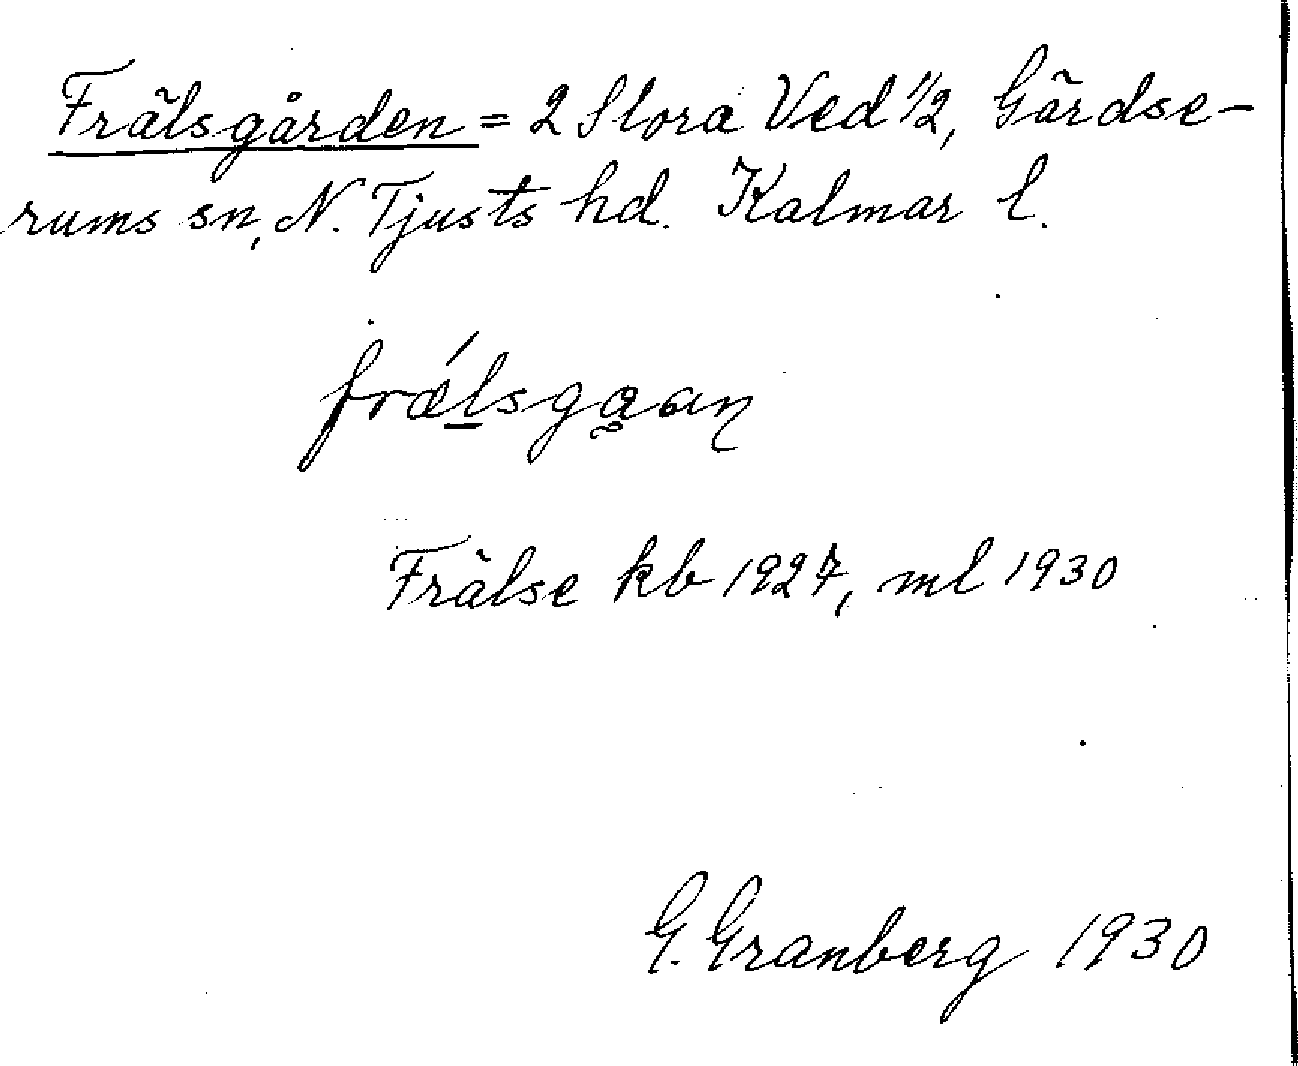 Frälsgården = 2 Stora Ved 1/2, Gärdse-
rums sn, N. Tjusts hd. Kalmar l.
Frälse kb 1927, ml 1930
G. Granberg 1930